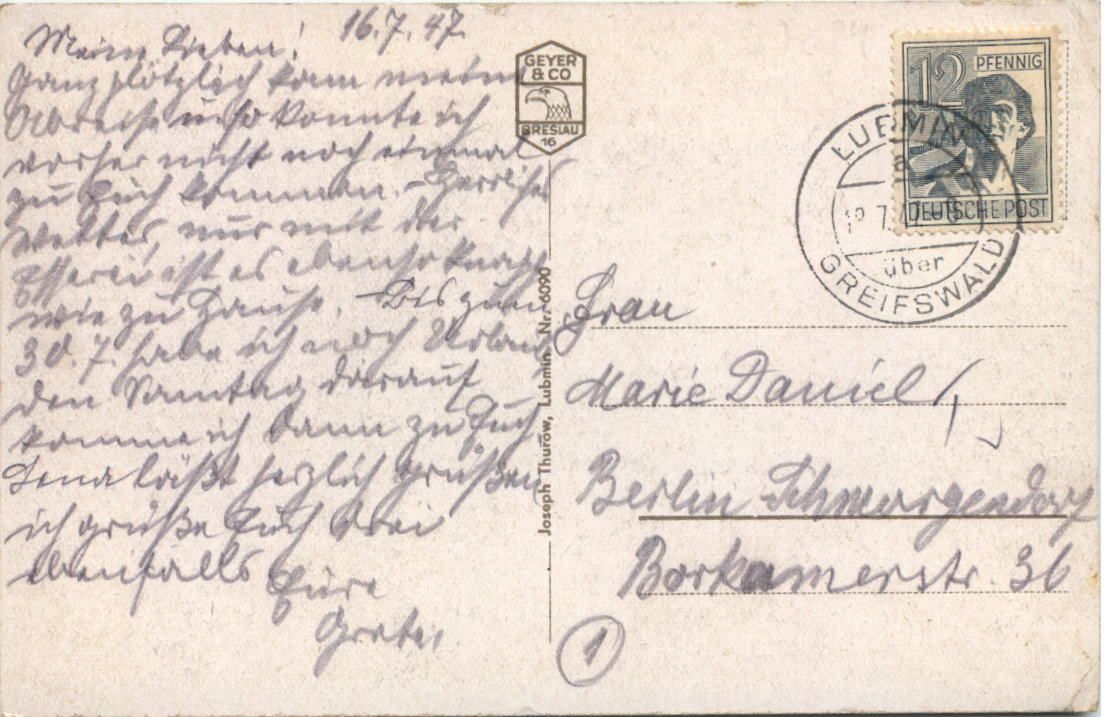 16.7.47.
Meine Lieben!
Ganz plötzlich kam meine
Abreise u. so konnte ich
vorher nicht noch einmal
zu Euch kommen. – Herrliches
Wetter, nur mit der
Esserei ist es ebenso knapp
wie zu Hause. Bis zum
30.7. habe ich noch Urlaub
den Sonntag darauf
komme ich dann zu Euch.
Lena läßt herzlich grüßen
ich grüße Euch drei
ebenfalls
Eure
Grete.
GEYER
& CO
BRESLAU
16
Joseph Thurow, Lubmin Nr. 6090
12 PFENNIG
DEUTSCHE POST
LUBMIN
über
GREIFSWALD
Frau
Marie Daniel
Berlin Schmargendorf
Borkumerstr. 36
1